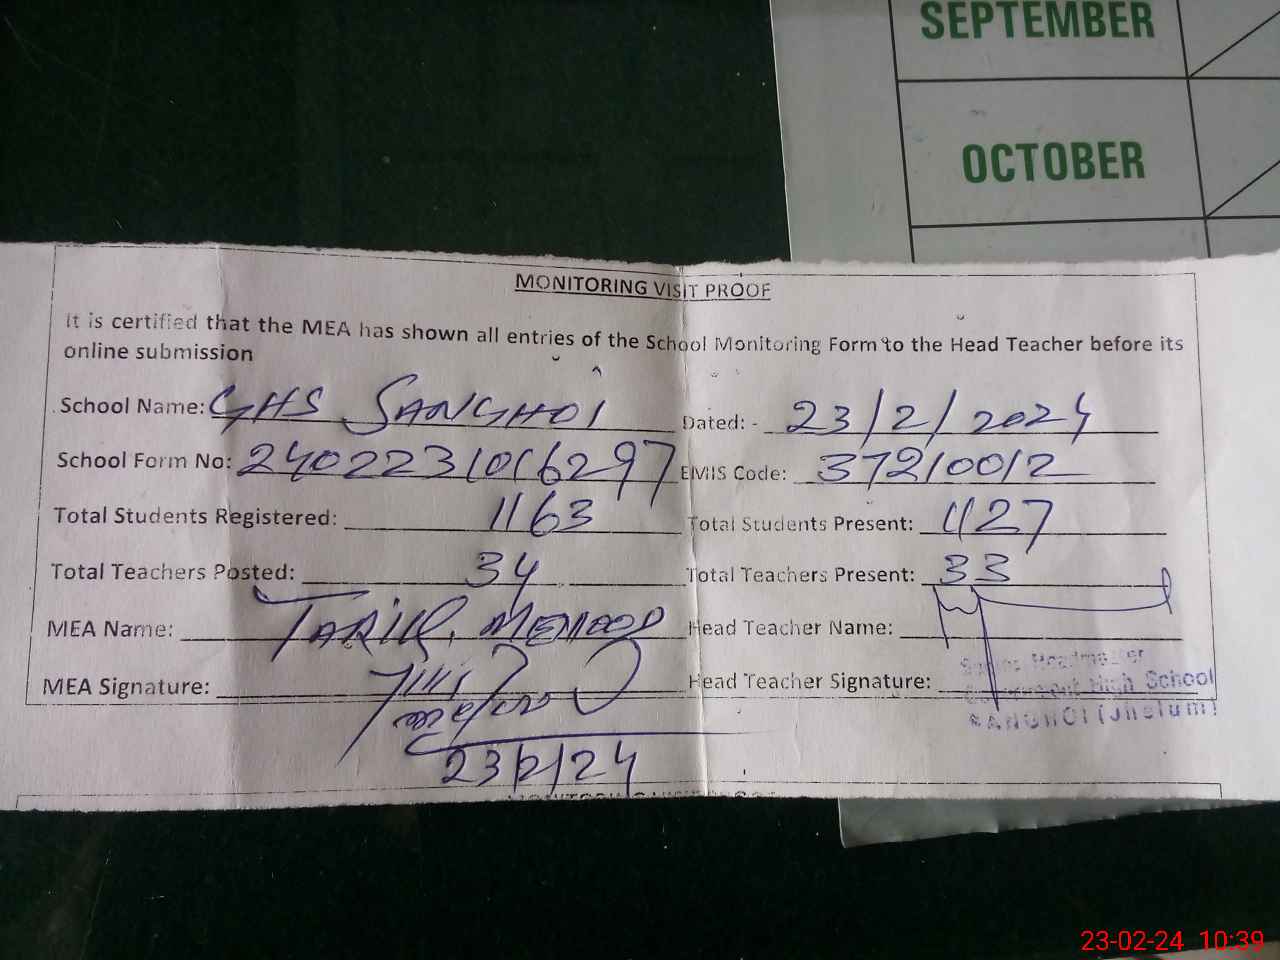 SEPTEMBER
OCTOBER
MONITORING VISIT PROOF
It is certified that the MEA has shown all entries of the School Monitoring Form to the Head Teacher before its
online submission
School Name: GHS SANGHOI Dated: - 23/2/2024
School Form No: 24022310106297 EMIS Code: 37210012
Total Students Registered: 1163 Total Students Present: 1127
Total Teachers Posted: 34 Total Teachers Present: 33
MEA Name: TARIQ MEHMOOD Head Teacher Name:
MEA Signature: Head Teacher Signature:
Senior Headmaster
Government High School
SANGHOI (Jhelum)
23/2/24
MONITORING VISIT PROOF
23-02-24 10:39